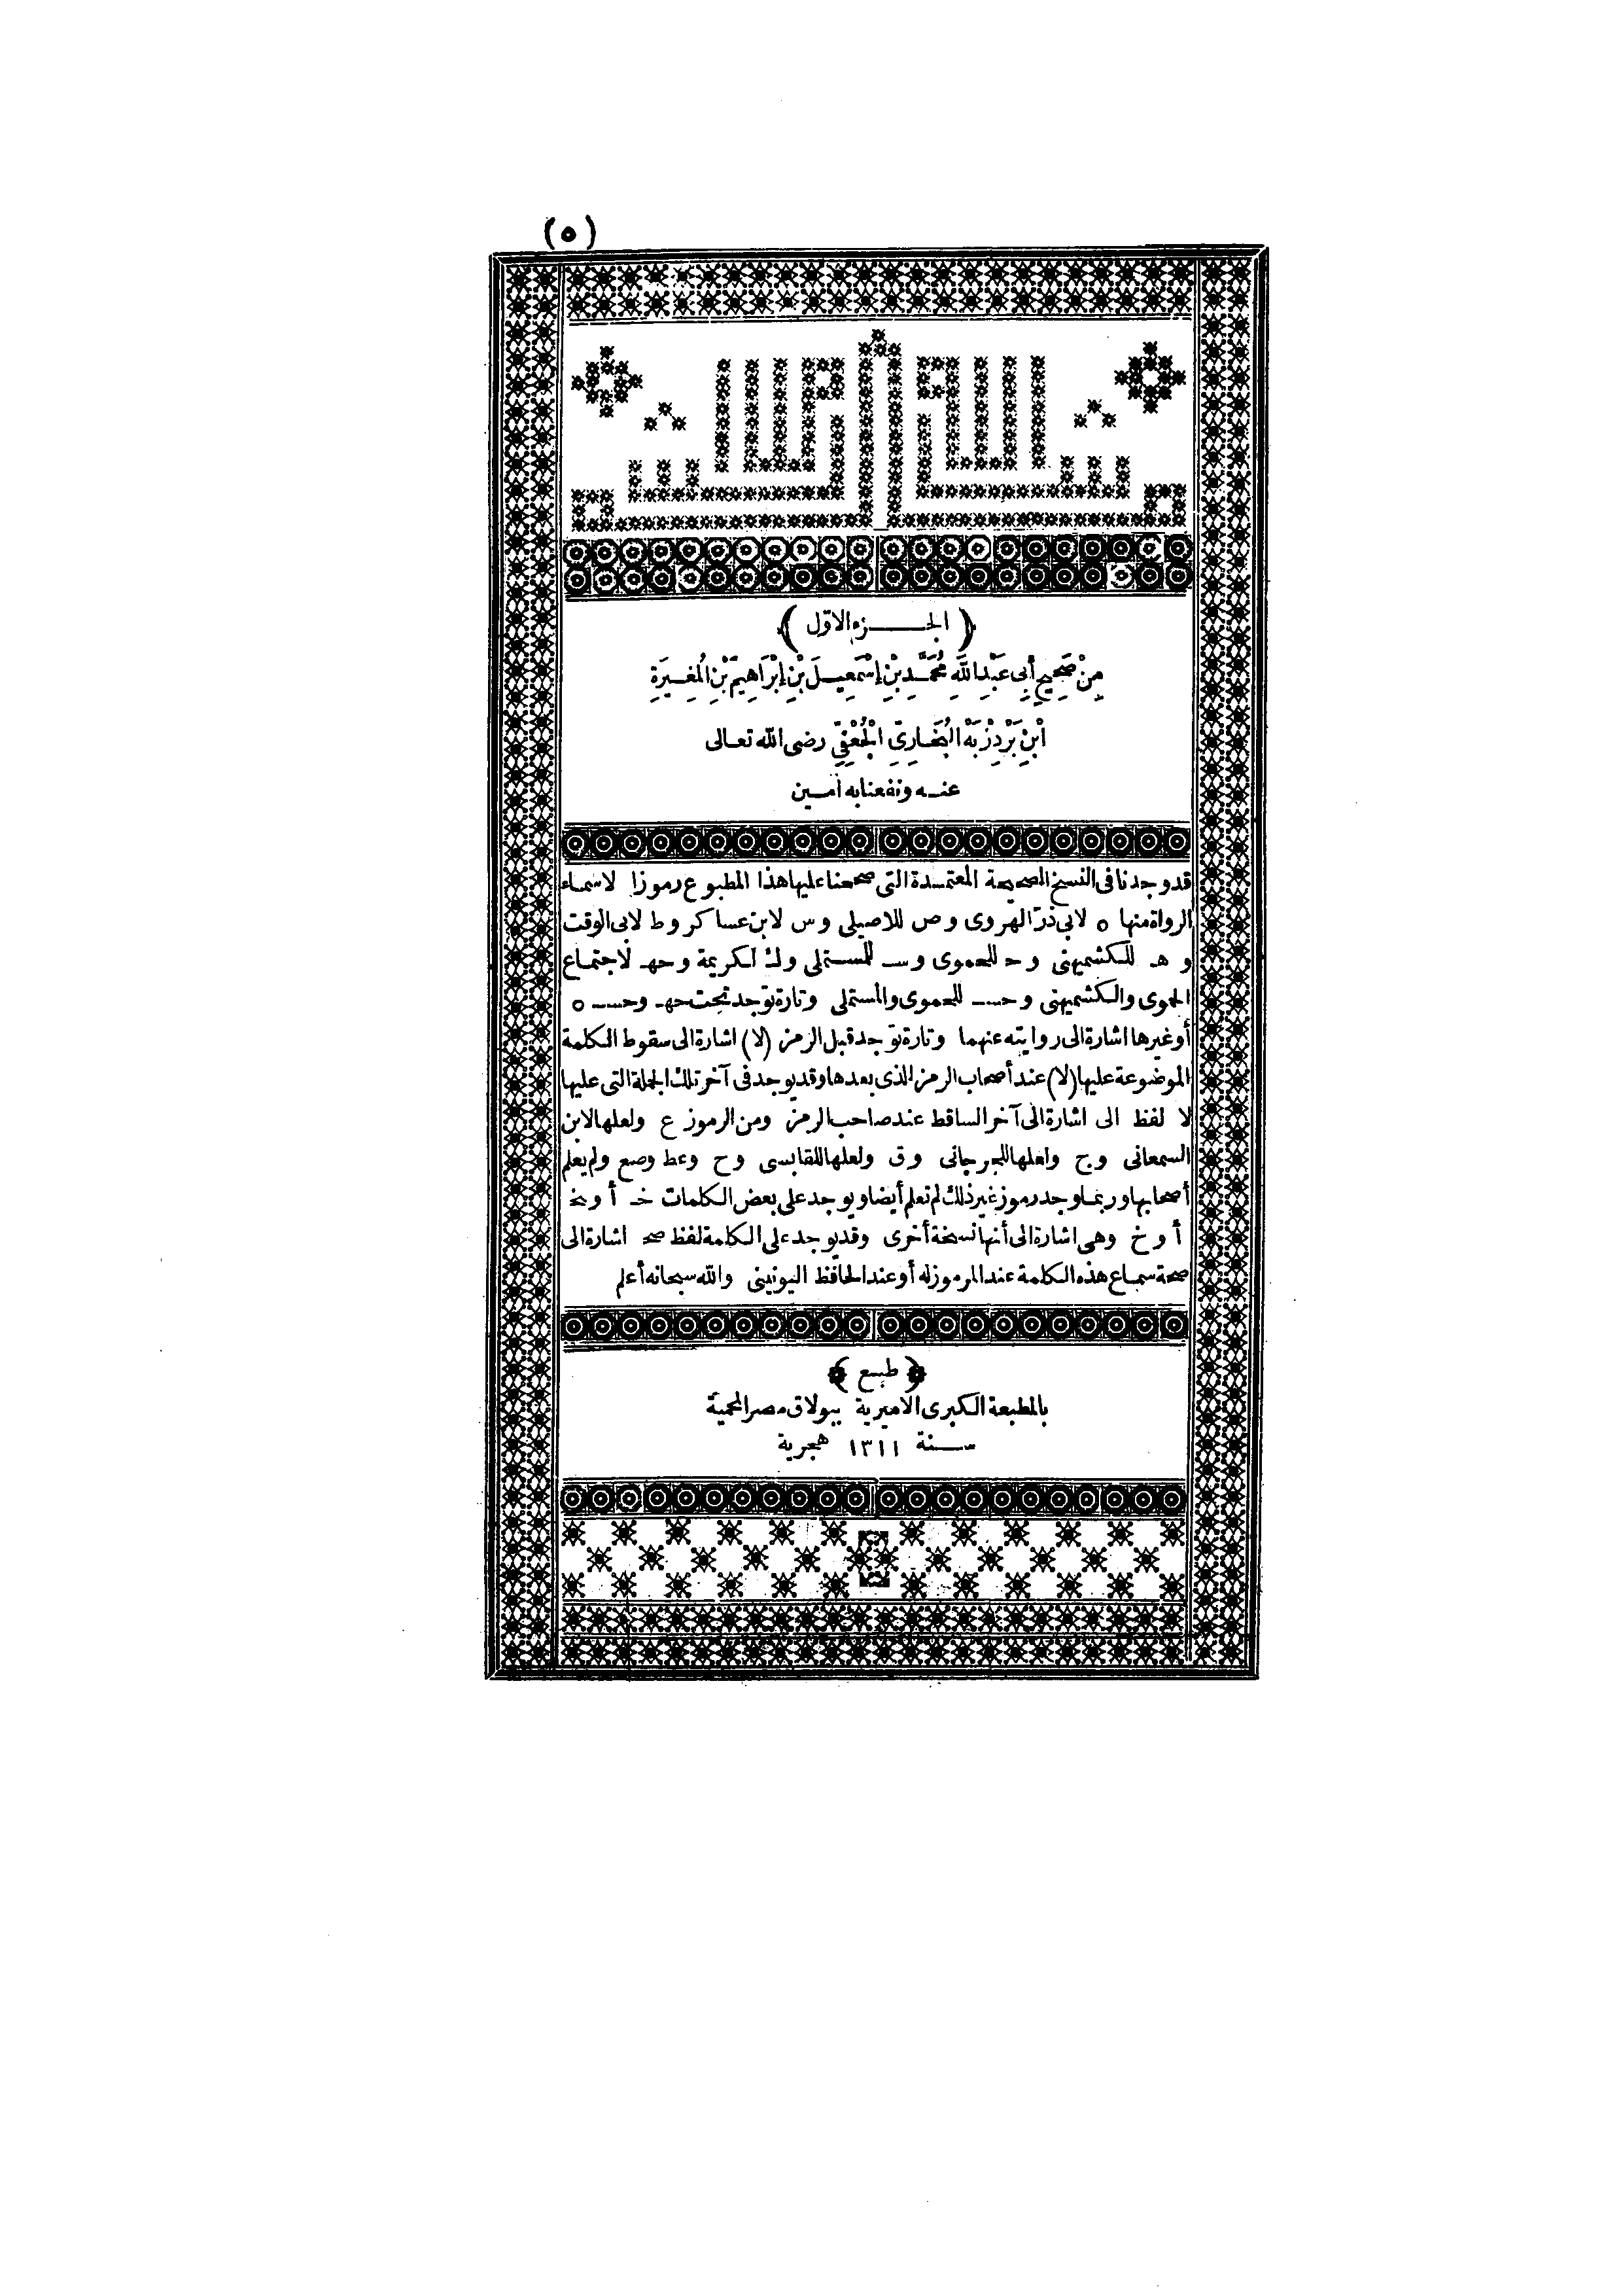 (٥)
(الجـــزء الاوّل)
مِنْ صَحِيحِ أَبِى عَبْدِ اللّٰهِ مُحَمَّدِ بْنِ إِسْمٰعِيلَ بْنِ إِبْرَاهِيمَ بْنِ الْمُغِيرَةِ
ابْنِ بَرْدِزْبَهْ الْبُخَارِىِّ الْجُعْفِىِّ رضى الله تعالى
عنه ونفعنا به آمين
قد وجدنا فى النسخ الصحيحة المعتمدة التى صححنا عليها هذا المطبوع رموزا لاسماء
الرواة منها ه لابى ذرّ الهروى و ص للاصيلى و س لابن عساكر و ط لابى الوقت
و هـ للكشميهنى و حـ للحموى و ســ للمستملى و ك لكريمة و حهـ لاجتماع
الحموى والكشميهنى و حســ للحموى والمستملى وتارة توجد تحت حهـ و حســ ه
أو غيرها اشارة الى روايته عنهما وتارة توجد قبل الرمز (لا) اشارة الى سقوط الكلمة
الموضوعة عليها (لا) عند أصحاب الرمز الذى بعدها وقد يوجد فى آخر تلك الجملة التى عليها
لا لفظ الى اشارة الى آخر الساقط عند صاحب الرمز ومن الرموز ع ولعلها لابن
السمعانى و ج ولعلها للجرجانى و ق ولعلها للقابسى و ح و عط و صع ولم يعلم
أصحابها وربما وجد رموز غير ذلك لم تعلم أيضا ويوجد على بعض الكلمات خـ أو نخـ
أو خ وهى اشارة الى أنها نسخة أخرى وقد يوجد على الكلمة لفظ صحـ اشارة الى
صحة سماع هذه الكلمة عند المرموز له أو عند الحافظ اليونينى والله سبحانه أعلم
(طبع)
بالمطبعة الكبرى الاميرية ببولاق مصر المحمية
سنة ١٣١١ هجرية